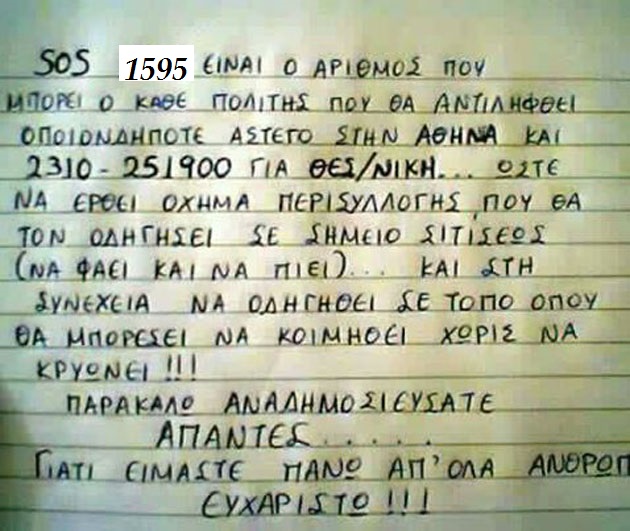 SOS 1595 ΕΙΝΑΙ Ο ΑΡΙΘΜΟΣ ΠΟΥ
ΜΠΟΡΕΙ Ο ΚΑΘΕ ΠΟΛΙΤΗΣ ΠΟΥ ΘΑ ΑΝΤΙΛΗΦΘΕΙ
ΟΠΟΙΟΝΔΗΠΟΤΕ ΑΣΤΕΓΟ ΣΤΗΝ ΑΘΗΝΑ ΚΑΙ
2310-251900 ΓΙΑ ΘΕΣ/ΝΙΚΗ... ΟΣΤΕ
ΝΑ ΕΡΘΕΙ ΟΧΗΜΑ ΠΕΡΙΣΥΛΛΟΓΗΣ ΠΟΥ ΘΑ
ΤΟΝ ΟΔΗΓΗΣΕΙ ΣΕ ΣΗΜΕΙΟ ΣΙΤΙΣΕΩΣ
(ΝΑ ΦΑΕΙ ΚΑΙ ΝΑ ΠΙΕΙ)... ΚΑΙ ΣΤΗ
ΣΥΝΕΧΕΙΑ ΝΑ ΟΔΗΓΗΘΕΙ ΣΕ ΤΟΠΟ ΟΠΟΥ
ΘΑ ΜΠΟΡΕΣΕΙ ΝΑ ΚΟΙΜΗΘΕΙ ΧΩΡΙΣ ΝΑ
ΚΡΥΩΝΕΙ!!!
ΠΑΡΑΚΑΛΩ ΑΝΑΔΗΜΟΣΙΕΥΣΑΤΕ
ΑΠΑΝΤΕΣ.....
ΓΙΑΤΙ ΕΙΜΑΣΤΕ ΠΑΝΩ ΑΠ'ΟΛΑ ΑΝΘΡΩΠ
ΕΥΧΑΡΙΣΤΩ!!!